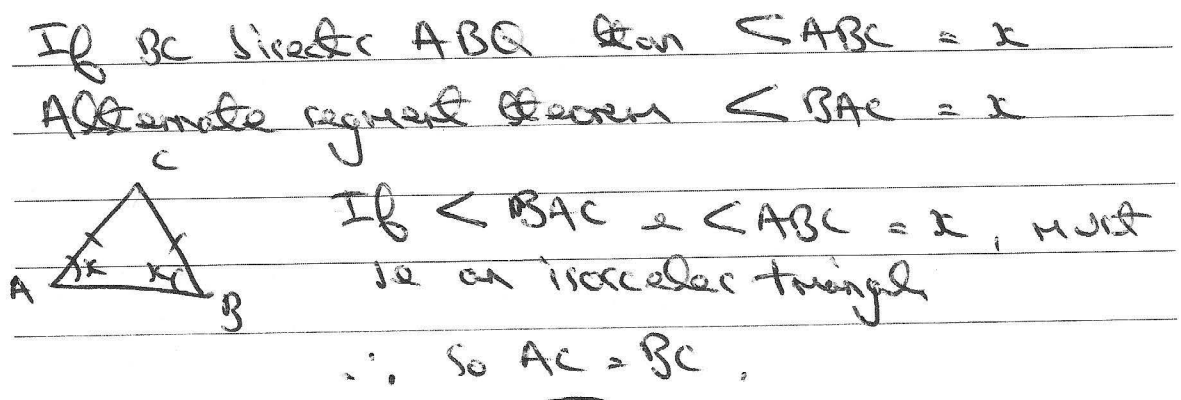 If BC bisects ABQ then <ABC = x
Alternate segment theorem <BAC = x
C
If <BAC & <ABC = x, must
x x
A
be an isosceles triangle
B
∴ So AC = BC.